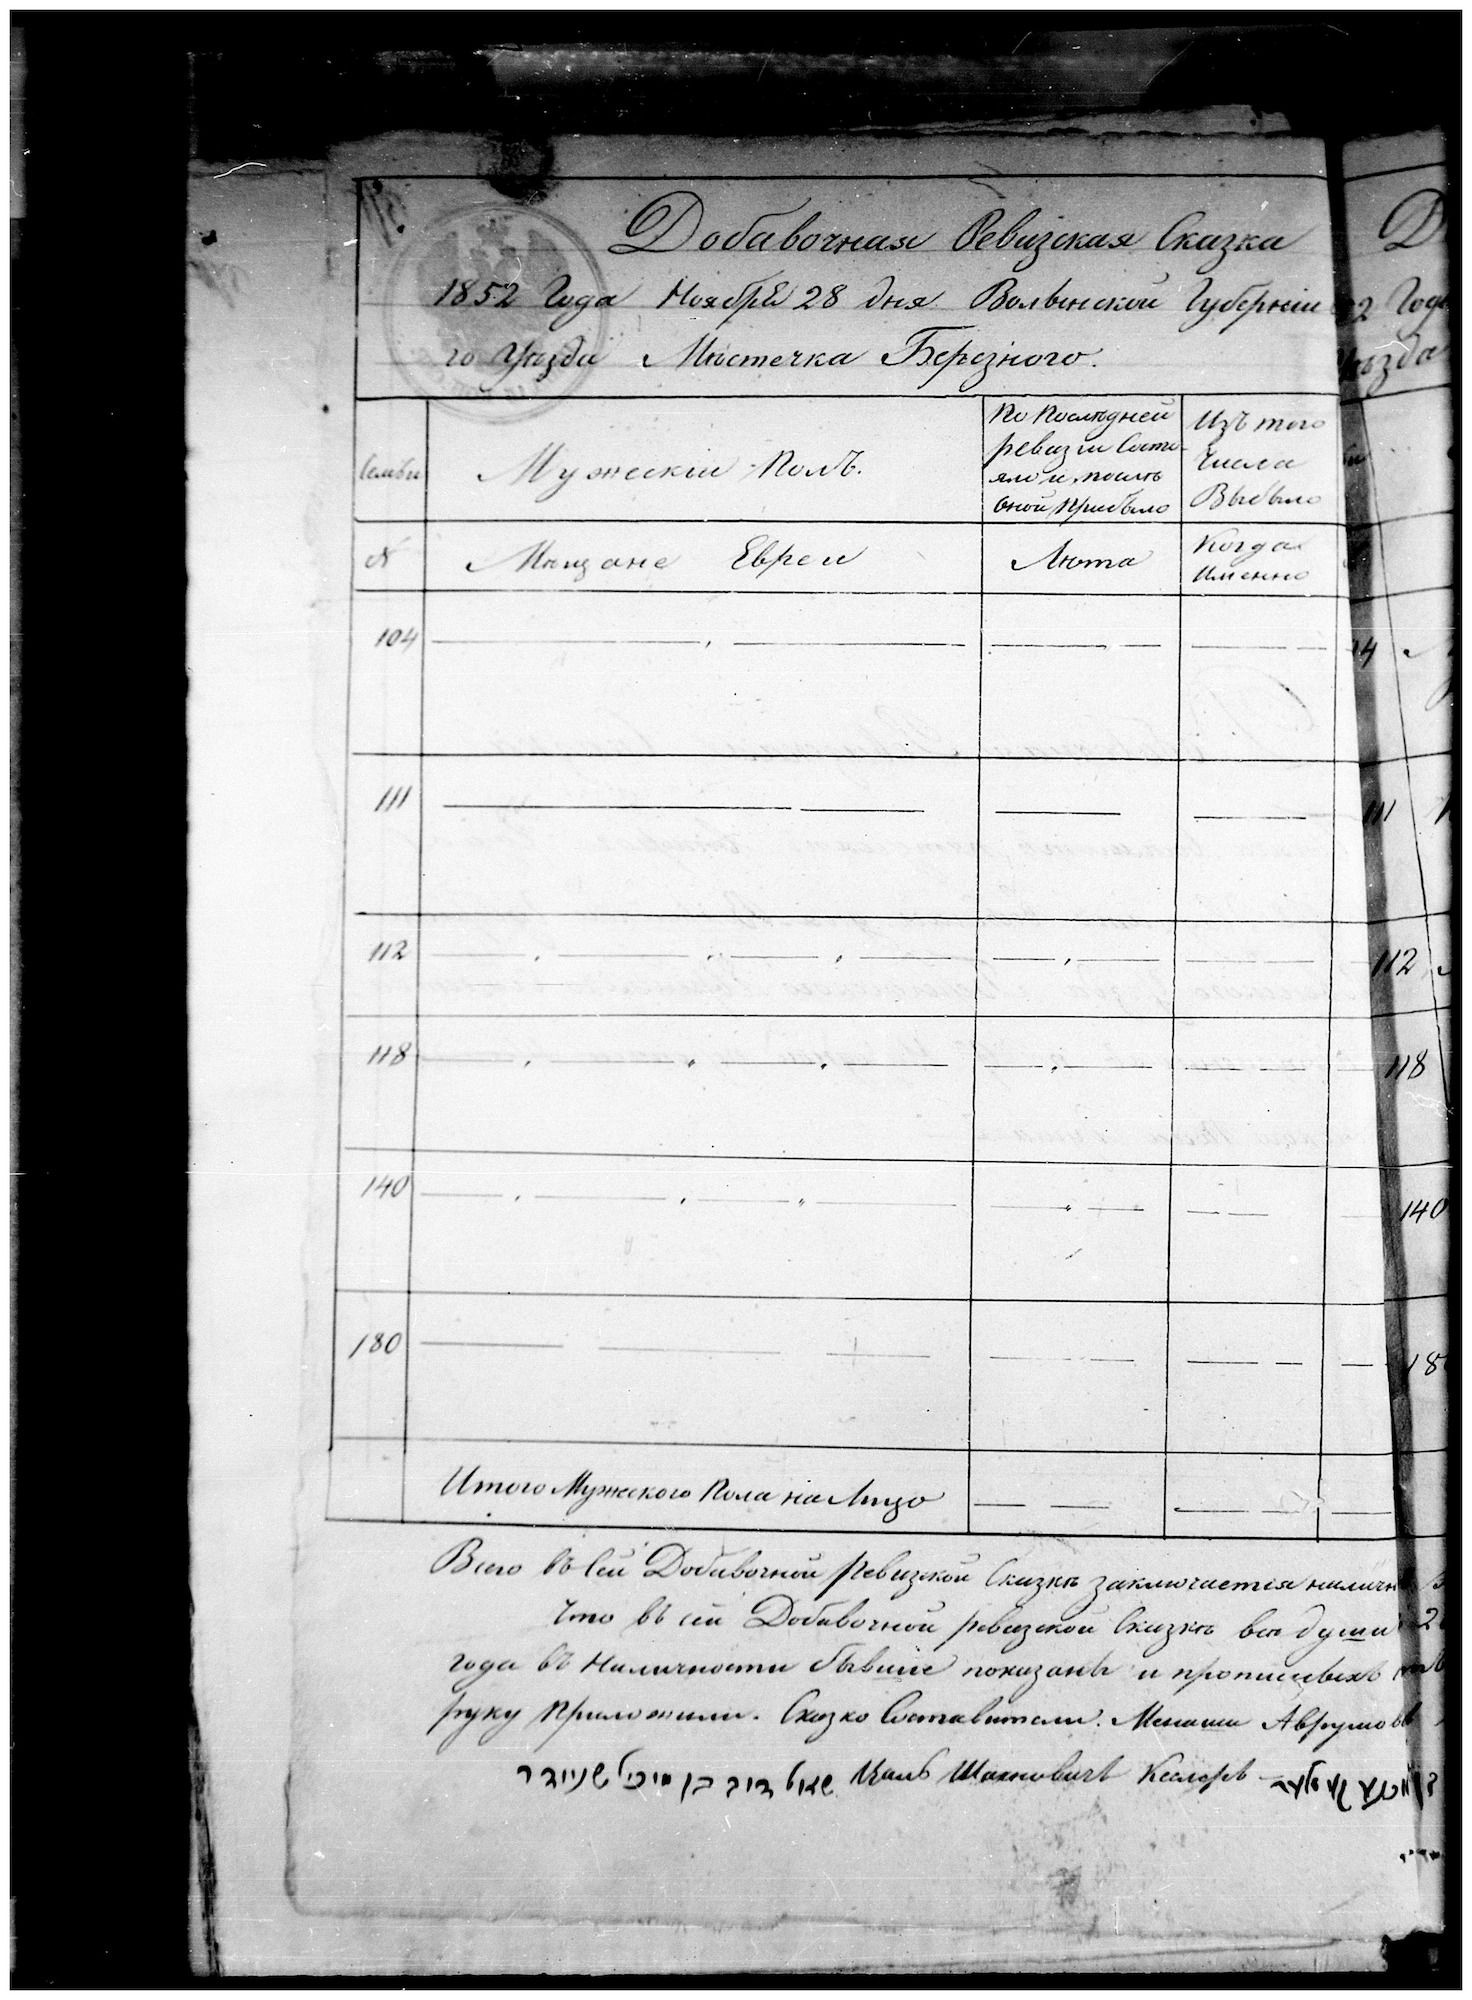 Добавочная Ревизская Сказка
1852 Года Ноября 28 дня Волынской Губерніи
го Уѣзда Мѣстечка Березного.
Семьи
Мужескій Полъ.
По Послѣдней ревизіи Состояло и послѣ оной прибыло
Изъ того Числа Выбыло
№
Мѣщане Евреи
Лѣта
Когда Именно
104
111
112
118
140
180
Итого Мужескаго Пола на Лицо
Всего въ сей Добавочной Ревизской Сказкѣ заключается
Что въ сей Добавочной ревизской Сказкѣ всѣ души
года въ Наличности бывшіе показаны и
руку Приложили. Сказко Составители.
שאול דוב בן מיכל שניידר Шахновичъ
2 Года
ѣзда
14
111
112
118
140